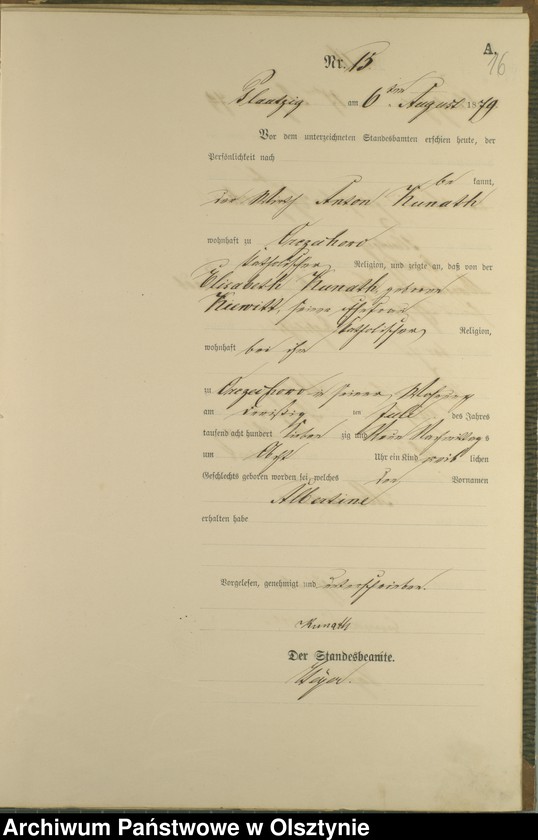 A.
16
Nr. 15.
am 6ten August 1879
Vor dem unterzeichneten Standesbeamten erschien heute, der
Persönlichkeit nach
be kannt,
der Anton Kunath
wohnhaft zu
katholischer Religion, und zeigte an, daß von der
Elisabeth Kunath geborene
seiner Ehefrau
katholischer Religion,
wohnhaft bei ihm
zu in seiner Wohnung
am dreißig ten Juli des Jahres
tausend acht hundert sieben zig und neun Nachmittag s
um acht Uhr ein Kind weib lichen
Geschlechts geboren worden sei, welches den Vornamen
Albertine
erhalten habe
Vorgelesen, genehmigt und unterschrieben.
Kunath
Der Standesbeamte.
Archiwum Państwowe w Olsztynie